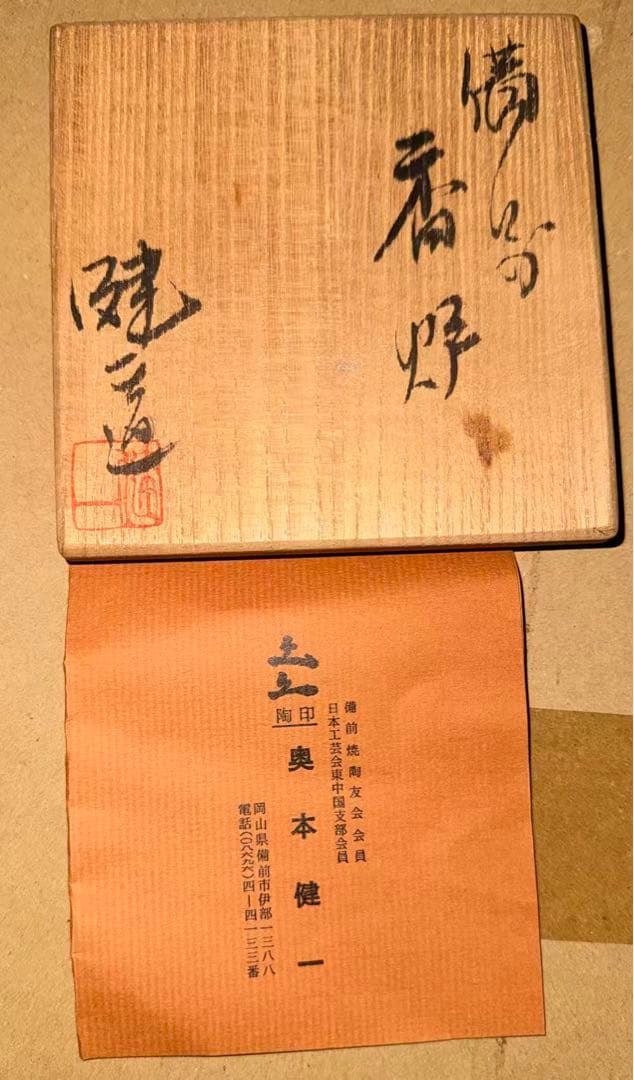 備前
香炉
健一造
陶印
備前焼陶友会会員
日本工芸会東中国支部会員
奥本健一
岡山県備前市伊部一三八八
電話(〇八六九六)四ー四一三三番